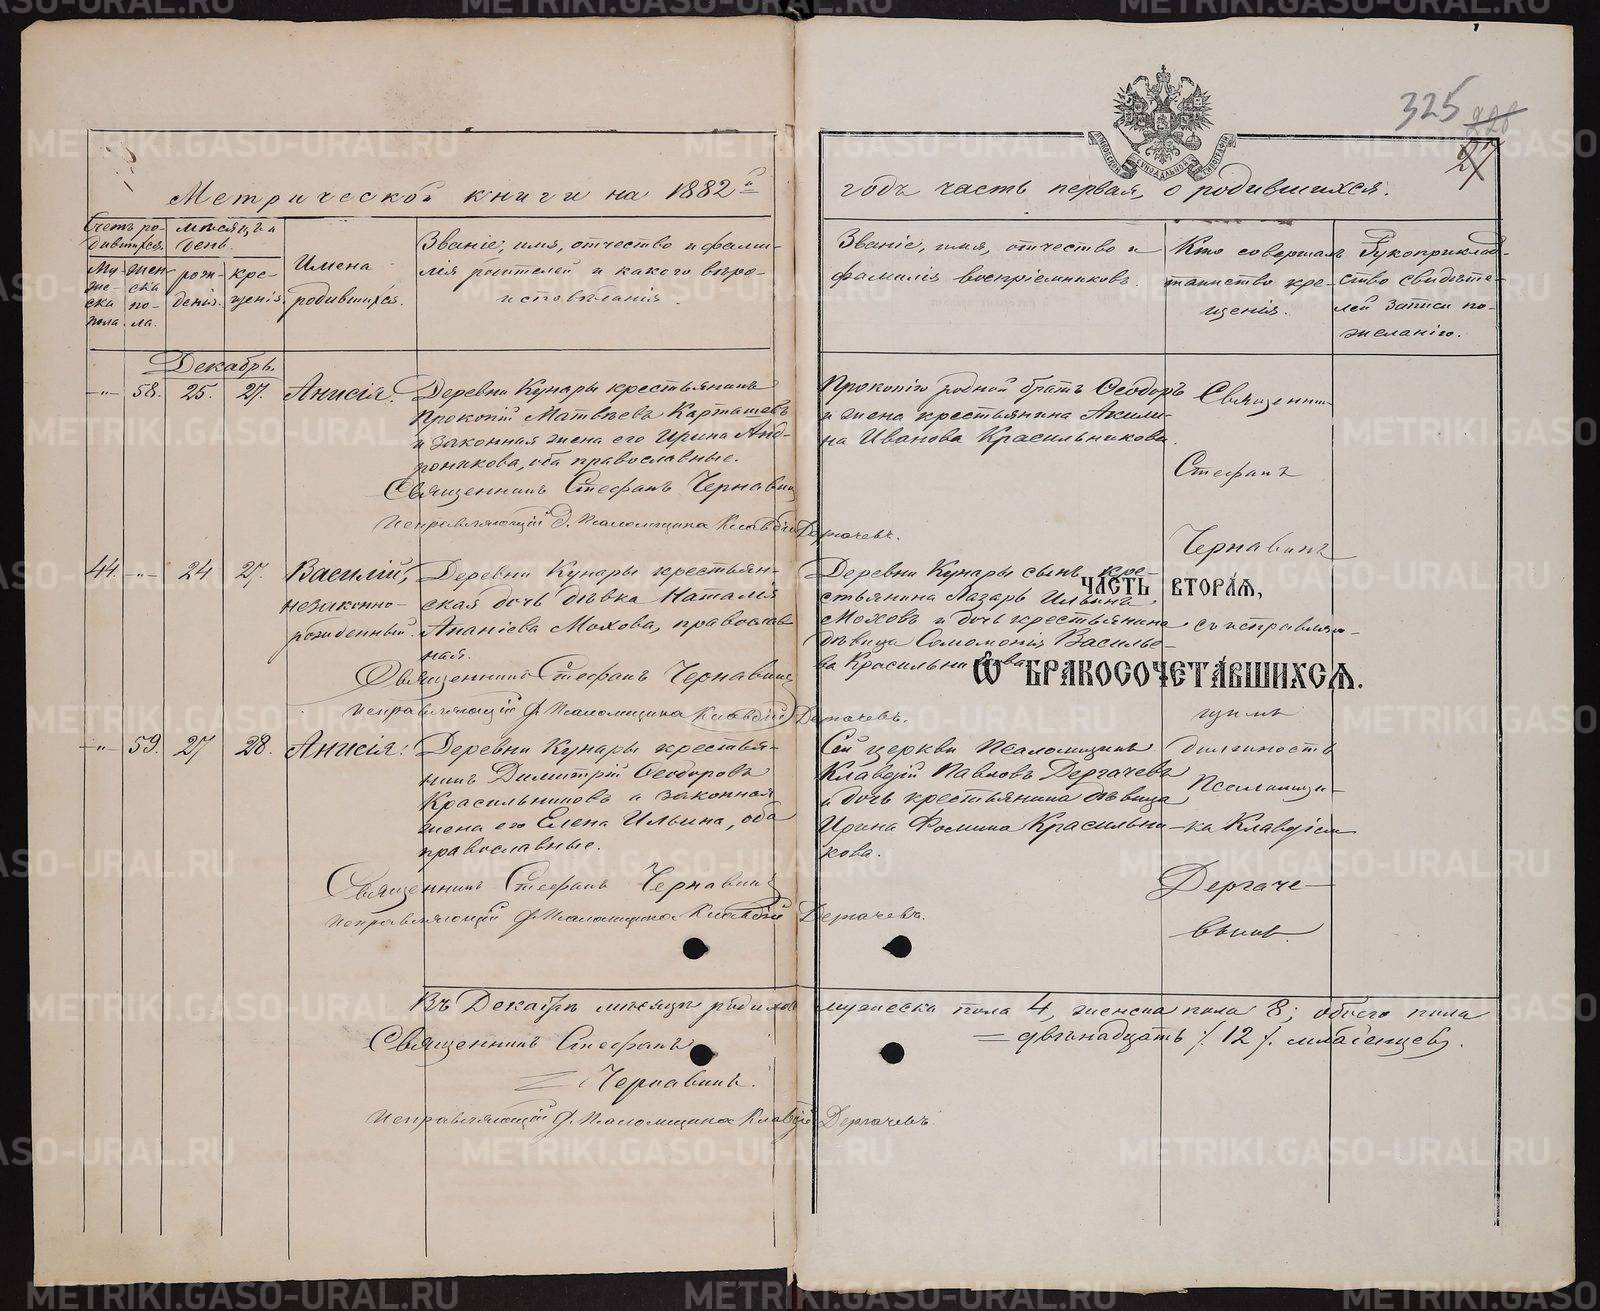 325
228
27
Метрической книги на 1882й
годъ часть первая, о родившихся.
Счетъ ро-
дившихся.
Му-
жеска
пола.
жен-
ска
по-
ла.
Мѣсяцъ и
день.
рож-
денія.
кре-
щенія.
Имена
родившихся.
Званіе, имя, отчество и фами-
лія родителей и какого вѣро-
исповѣданія.
Званіе, имя, отчество и
фамилія воспріемниковъ.
Кто совершалъ
таинство кре-
щенія.
Рукоприклад-
ство свидѣте-
лей записи по
желанію.
Декабрь.
-"- 58. 25. 27. Анисія.
Деревни Кунары крестьянинъ
Прокопій Матвѣевъ Карташевъ
и законная жена его Ирина Анд-
роникова, оба православные.
Священникъ Стефанъ Чернавинъ
Исправляющій д. Псаломщика Клавдій Дергачевъ.
Прокопію родной братъ Ѳеодоръ
и жена крестьянина Акили-
на Иванова Красильникова.
Священникъ
Стефанъ
Чернавинъ
44. -"- 24 27. Василій,
незаконно-
рожденный.
Деревни Кунары крестьян-
ская дочь дѣвка Наталія
Ананіева Мохова, православ-
ная.
Священникъ Стефанъ Чернавинъ
Исправляющій д. Псаломщика Клавдій Дергачевъ.
Деревни Кунары сынъ кре-
стьянина Лазарь Ильинъ
Моховъ и дочь крестьянина
дѣвица Соломонія Василье-
ва Красильникова
ЧАСТЬ ВТОРАЯ,
Ѡ БРАКОСОЧЕТАВШИХСѦ.
съ исправляю-
щимъ
должность
Псаломщи-
ка Клавдіемъ
Дергаче-
вымъ.
-"- 59. 27 28. Анисія:
Деревни Кунары крестья-
нинъ Димитрій Ѳеодоровъ
Красильниковъ и законная
жена его Елена Ильина, оба
православные.
Священникъ Стефанъ Чернавинъ
Исправляющій д. Псаломщика Клавдій Дергачевъ.
Сей церкви Псаломщикъ
Клавдій Павловъ Дергачевъ
и дочь крестьянина дѣвица
Ирина Фомина Красильни-
кова.
Въ Декабрѣ мѣсяцѣ родилось мужеска пола 4, женска пола 8; обоего пола
= двѣнадцать /. 12 /. младенцевъ.
Священникъ Стефанъ
= Чернавинъ.
Исправляющій д. Псаломщика Клавдій Дергачевъ
METRIKI.GASO-URAL.RU